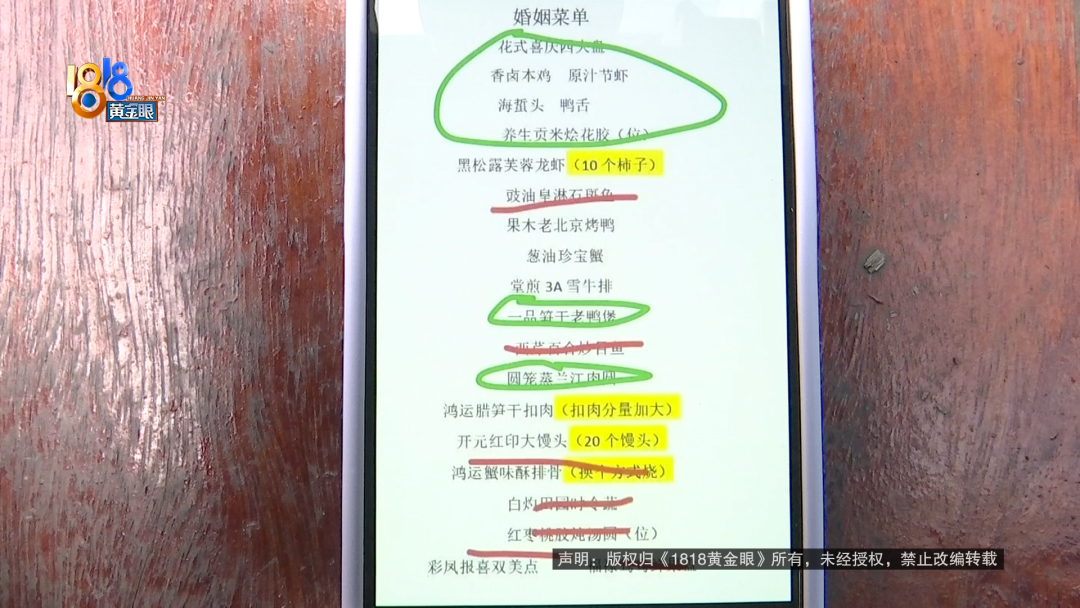 婚姻菜单
花式喜庆四大盘
香卤本鸡 原汁节虾
海蜇头 鸭舌
养生贡米烩花胶（位）
黑松露芙蓉龙虾（10个柿子）
豉油皇淋石斑鱼
果木老北京烤鸭
葱油珍宝蟹
堂煎3A雪牛排
一品笋干老鸭煲
西芹百合炒目鱼
圆笼蒸兰江肉圆
鸿运腊笋干扣肉（扣肉分量加大）
开元红印大馒头（20个馒头）
鸿运蟹味酥排骨（换个方式烧）
白灼田园时令蔬
红枣桃胶炖汤圆（位）
彩凤报喜双美点
1818
HUANG JIN YAN
黄金眼
声明：版权归《1818黄金眼》所有，未经授权，禁止改编转载